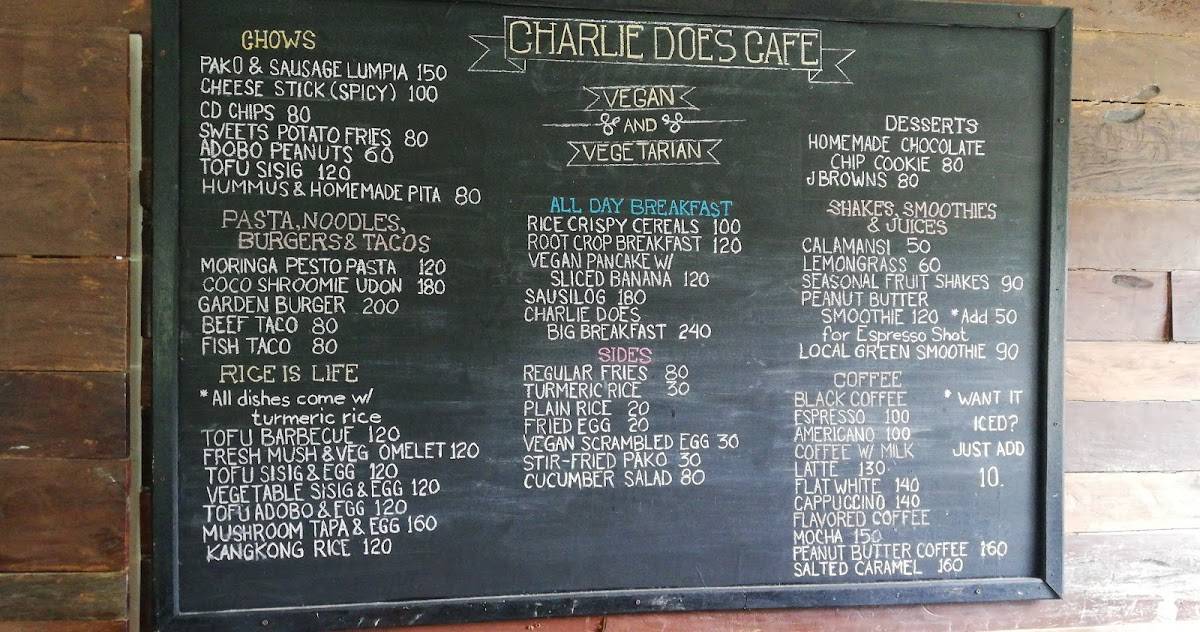 CHARLIE DOES CAFE
VEGAN
AND
VEGETARIAN
CHOWS
PAKO & SAUSAGE LUMPIA 150
CHEESE STICK (SPICY) 100
CD CHIPS 80
SWEETS POTATO FRIES 80
ADOBO PEANUTS 60
TOFU SISIG 120
HUMMUS & HOMEMADE PITA 80
PASTA, NOODLES,
BURGERS & TACOS
MORINGA PESTO PASTA 120
COCO SHROOMIE UDON 180
GARDEN BURGER 200
BEEF TACO 80
FISH TACO 80
RICE IS LIFE
*All dishes come w/
turmeric rice
TOFU BARBECUE 120
FRESH MUSH & VEG OMELET 120
TOFU SISIG & EGG 120
VEGETABLE SISIG & EGG 120
TOFU ADOBO & EGG 120
MUSHROOM TAPA & EGG 160
KANGKONG RICE 120
ALL DAY BREAKFAST
RICE CRISPY CEREALS 100
ROOT CROP BREAKFAST 120
VEGAN PANCAKE W/
SLICED BANANA 120
SAUSILOG 180
CHARLIE DOES
BIG BREAKFAST 240
SIDES
REGULAR FRIES 80
TURMERIC RICE 30
PLAIN RICE 20
FRIED EGG 20
VEGAN SCRAMBLED EGG 30
STIR-FRIED PAKO 30
CUCUMBER SALAD 80
DESSERTS
HOMEMADE CHOCOLATE
CHIP COOKIE 80
J BROWNS 80
SHAKES, SMOOTHIES
& JUICES
CALAMANSI 50
LEMONGRASS 60
SEASONAL FRUIT SHAKES 90
PEANUT BUTTER
SMOOTHIE 120 *Add 50
for Espresso Shot
LOCAL GREEN SMOOTHIE 90
COFFEE
BLACK COFFEE
ESPRESSO 100
AMERICANO 100
COFFEE W/ MILK
LATTE 130
FLAT WHITE 140
CAPPUCCINO 140
FLAVORED COFFEE
MOCHA 150
PEANUT BUTTER COFFEE 160
SALTED CARAMEL 160
* WANT IT
ICED?
JUST ADD
10.